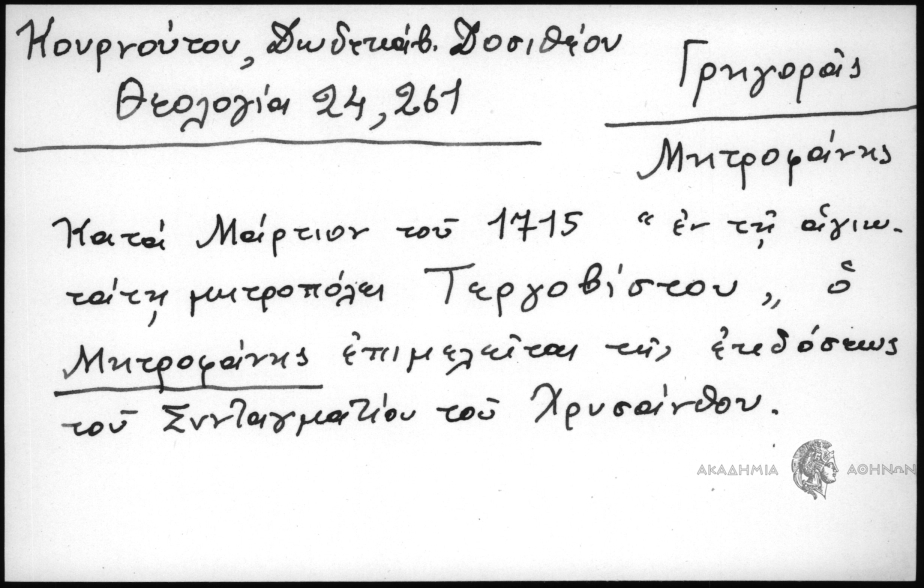 Κουρνούτου, Δωδεκάβ. Δοσιθέου
Θεολογία 24, 261
Γρηγορᾶς
Μητροφάνης
Κατά Μάρτιον τοῦ 1715 “ ἐν τῇ ἁγιω-
τάτῃ μητροπόλει Τεργοβίστου „ ὁ
Μητροφάνης ἐπιμελεῖται τῆς ἐκδόσεως
τοῦ Συνταγματίου τοῦ Χρυσάνθου.
ΑΚΑΔΗΜΙΑ ΑΘΗΝΩΝ